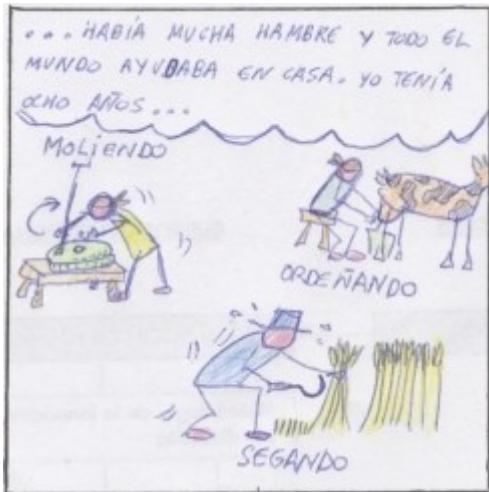 ... HABÍA MUCHA HAMBRE Y TODO EL
MUNDO AYUDABA EN CASA. YO TENÍA
OCHO AÑOS...
MOLIENDO
ORDEÑANDO
SEGANDO